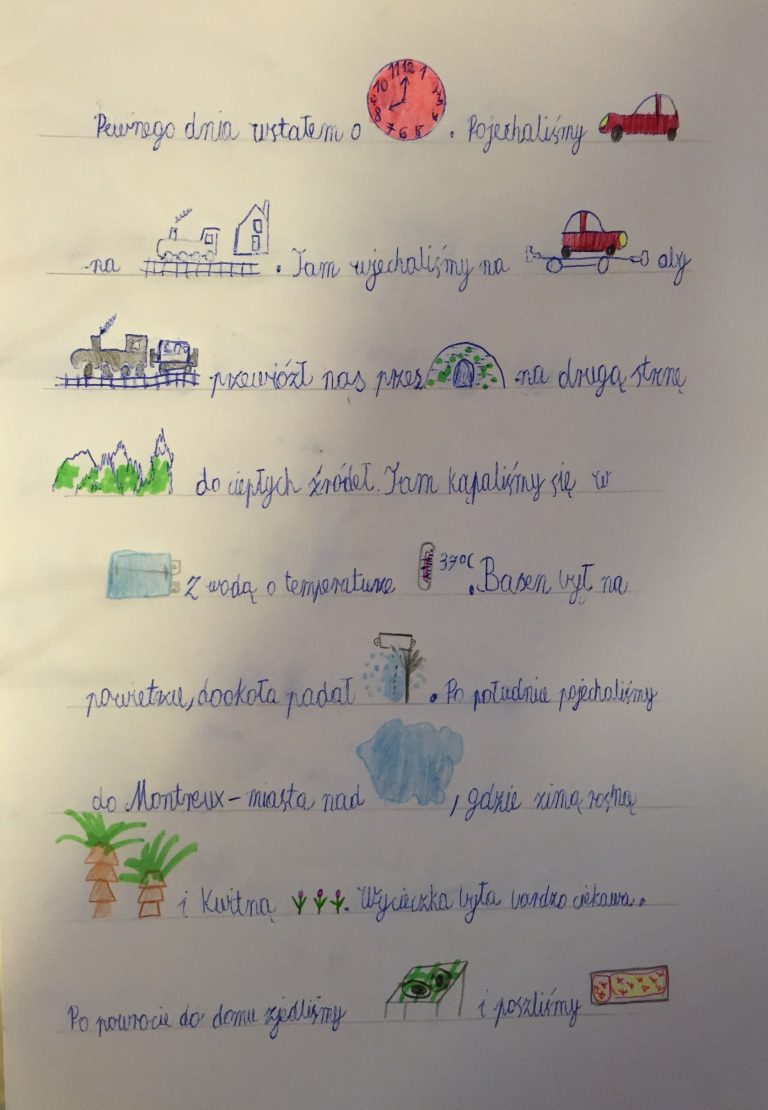 11 12 1
10
8 7 6 5
Pewnego dnia wstałem o . Pojechaliśmy
na . Tam wjechaliśmy na aby
przewiózł nas przez na drugą stronę
do ciepłych źródeł. Tam kąpaliśmy się w
z wodą o temperaturze 37°C . Basen był na
powietrzu, dookoła padał . Po południu pojechaliśmy
do Montreux - miasta nad , gdzie zimą rosną
i kwitną . Wycieczka była bardzo ciekawa.
Po powrocie do domu zjedliśmy i poszliśmy